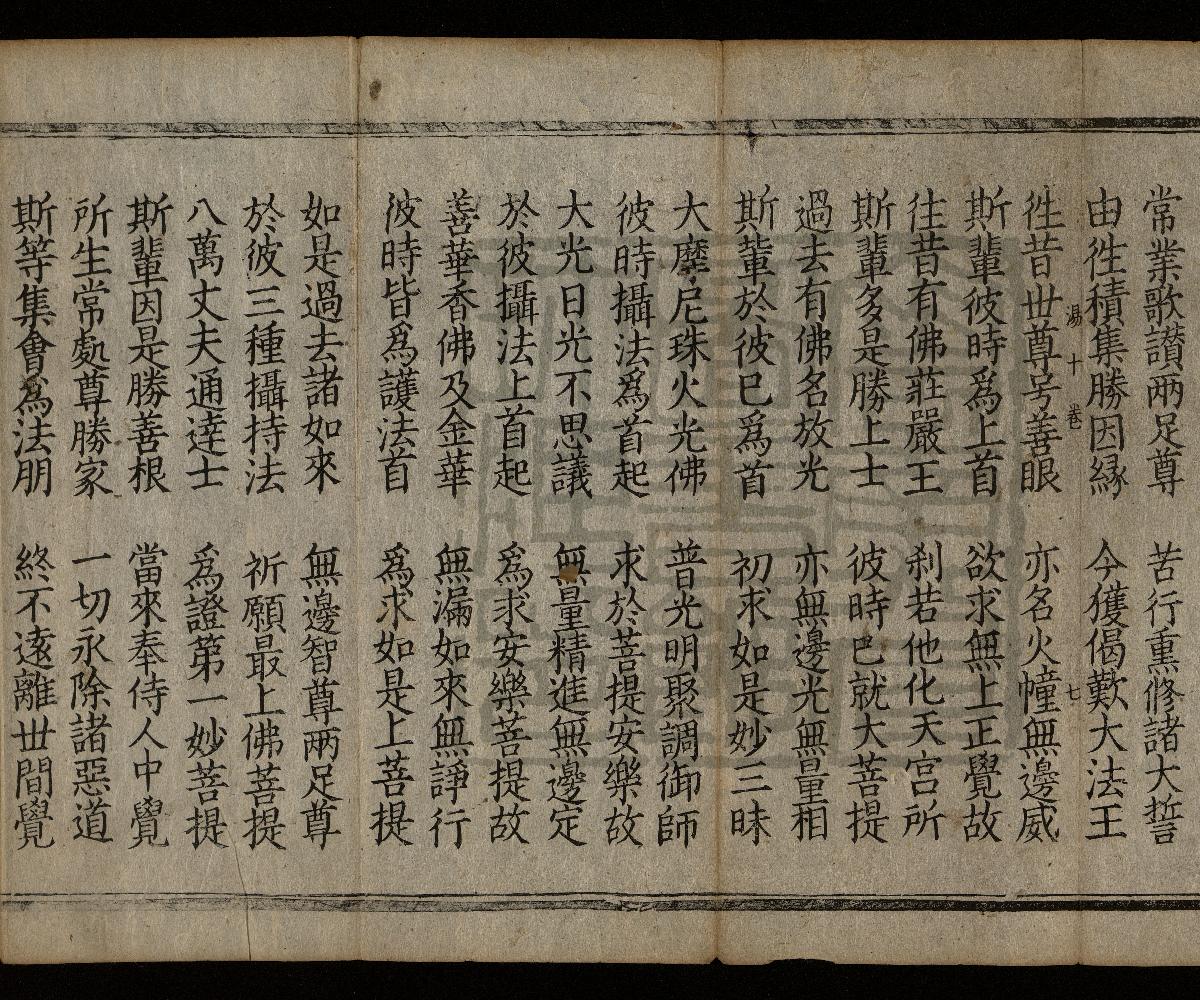 常業歌讃兩足尊　苦行熏修諸大誓
由徃積集勝因縁　今獲偈歎大法王
湯　十　卷　七
徃昔丗尊号善眼　亦名火幢無邊威
斯輩彼時爲上首　欲求無上正覺故
徃昔有佛莊嚴王　刹若他化天宮所
斯輩多是勝上士　彼時已就大菩提
過去有佛名放光　亦無邊光無量相
斯輩於彼已爲首　初求如是妙三昧
大麽尼珠火光佛　普光明聚調御師
彼時攝法爲首起　求於菩提安樂故
大光日光不思議　無量精進無邊定
於彼攝法上首起　爲求安樂菩提故
善華香佛及金華　無漏如來無諍行
彼時皆爲護法首　爲求如是上菩提
如是過去諸如來　無邊智尊兩足尊
於彼三種攝持法　祈願最上佛菩提
八萬丈夫通達士　爲證第一妙菩提
斯輩因是勝善根　當來奉侍人中覺
所生常處尊勝家　一切永除諸惡道
斯等集會爲法朋　終不遠離丗間覺